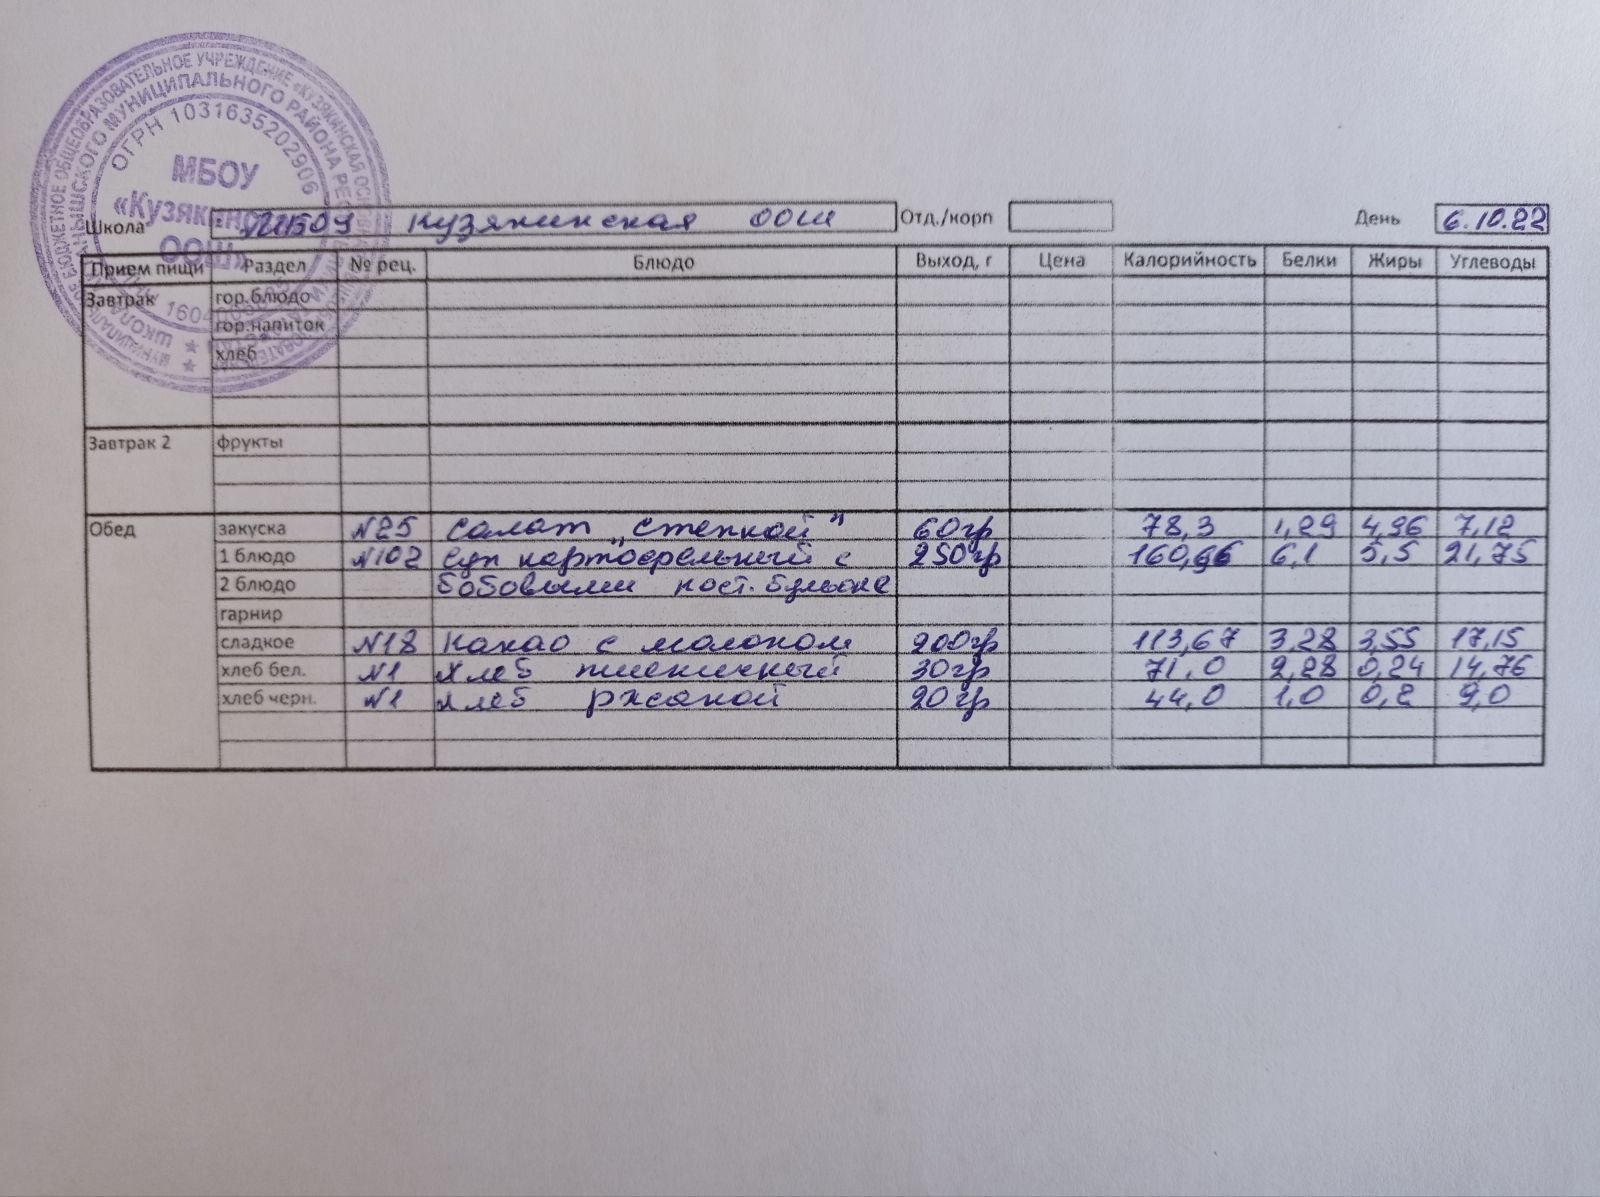 МУНИЦИПАЛЬНОЕ БЮДЖЕТНОЕ ОБЩЕОБРАЗОВАТЕЛЬНОЕ УЧРЕЖДЕНИЕ «КУЗЯКИНСКАЯ
МУНИЦИПАЛЬНОГО РАЙОНА
ОГРН 1031635202906
МБОУ
«Кузякинс
ООШ»
Школа МБОУ Кузякинская ООШ Отд./корп День 6.10.22
Прием пищи Раздел № рец. Блюдо Выход, г Цена Калорийность Белки Жиры Углеводы
Завтрак гор.блюдо
гор.напиток
хлеб
Завтрак 2 фрукты
Обед закуска №25 Салат „Степной" 60гр 78,3 1,29 4,96 7,12
1 блюдо №102 Суп картофельный с 250гр 160,96 6,1 5,5 21,75
2 блюдо бобовыми кост. бульоне
гарнир
сладкое №18 Какао с молоком 200гр 113,67 3,28 3,55 17,15
хлеб бел. №1 Хлеб пшеничный 30гр 71,0 2,28 0,24 14,76
хлеб черн. №1 Хлеб ржаной 20гр 44,0 1,0 0,2 9,0